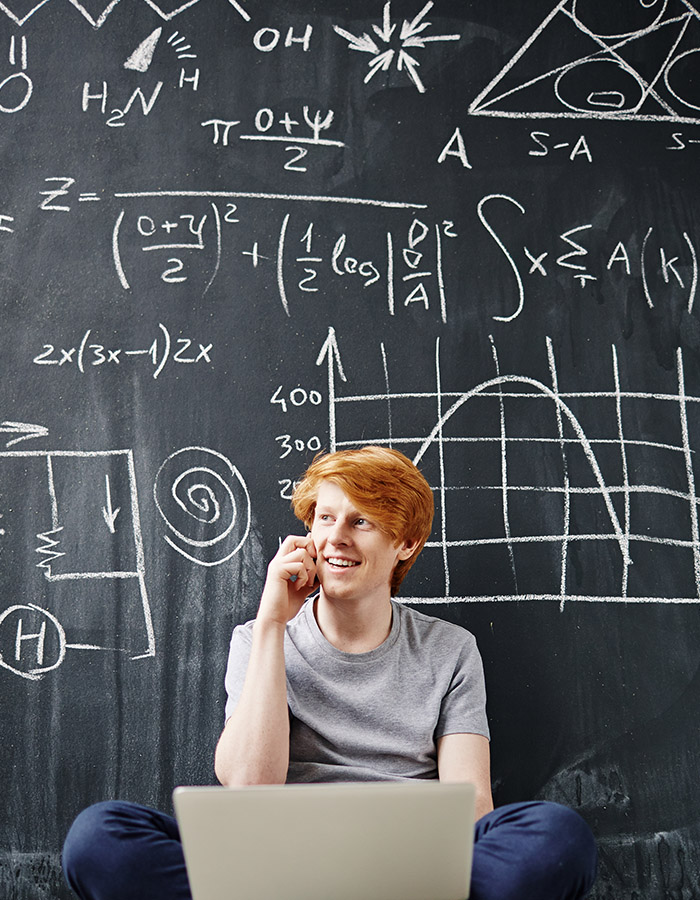 OH
O
H₂N
H
π (0+ψ)/2
A
S-A
S-
Z= (0+4/2)² + (1/2 log |0 0/A|²
∫x Σ A(K)
T
2x(3x-1)2x
400
300
2
H